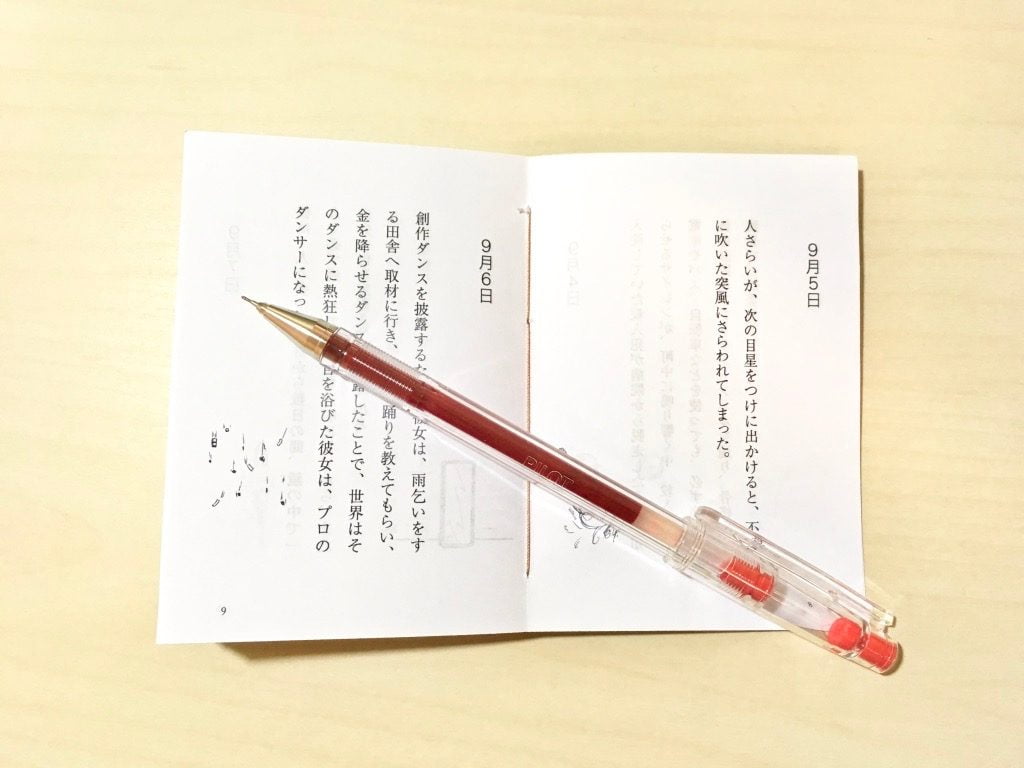 9月5日
人さらいが、次の目星をつけに出かけると、不意
に吹いた突風にさらわれてしまった。
9月6日
創作ダンスを披露する 彼女は、雨乞いをす
る田舎へ取材に行き、 踊りを教えてもらい、
金を降らせるダンス 露したことで、世界はそ
のダンスに熱狂し を浴びた彼女は、プロの
ダンサーになっ
9
PILOT